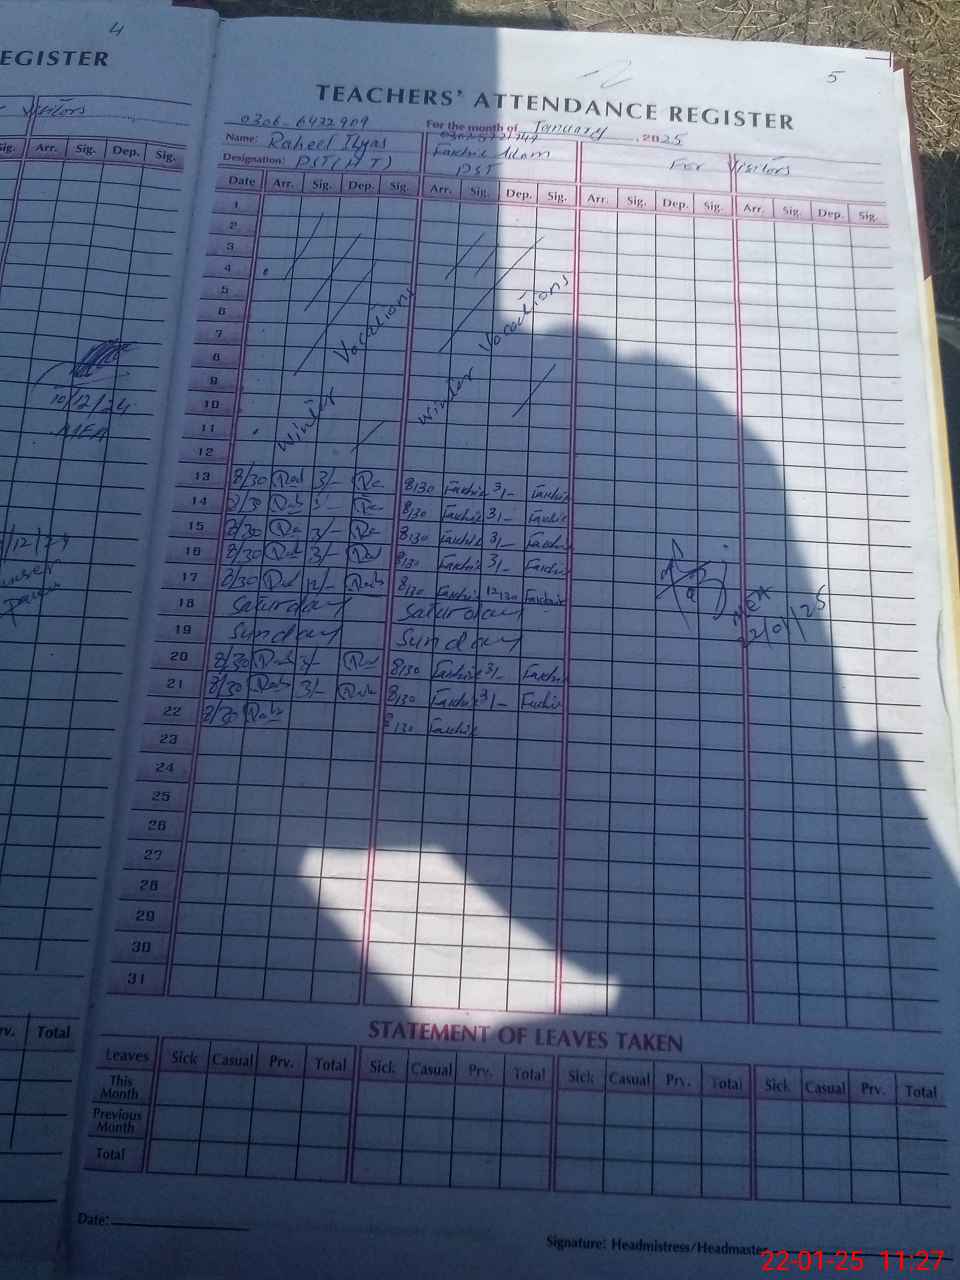 4
EGISTER
Visitors
Sig. Arr. Sig. Dep. Sig.
10/12/24
/12/24
rv. Total
5
TEACHERS' ATTENDANCE REGISTER
0306-6432909
For the month of January, 2025
Name: Raheel Ilyas
Designation: PST(H T) PST For Visitors
Date Arr. Sig. Dep. Sig. Arr. Sig. Dep. Sig. Arr. Sig. Dep. Sig. Arr. Sig. Dep. Sig.
1
2
3
4
5
6
7
8
9
10
11
12
Winter Vacations
Winter Vacations
13 8/30 3/- 8/30 3/-
14 8/30 3/- 8/30 3/-
15 8/30 3/- 8/30 3/-
16 8/30 3/- 8/30 3/-
17 8/30 12/- 8/30 12/30
18 Saturday Saturday
19 Sunday Sunday
20 8/30 3/- 8/30 3/-
21 8/30 3/- 8/30 3/-
22 8/30 8/30
MEA
22/01/25
23
24
25
26
27
28
29
30
31
STATEMENT OF LEAVES TAKEN
Leaves Sick Casual Prv. Total Sick Casual Prv. Total Sick Casual Prv. Total Sick Casual Prv. Total
This Month
Previous Month
Total
Date:
Signature: Headmistress/Headmaster
22-01-25 11:27